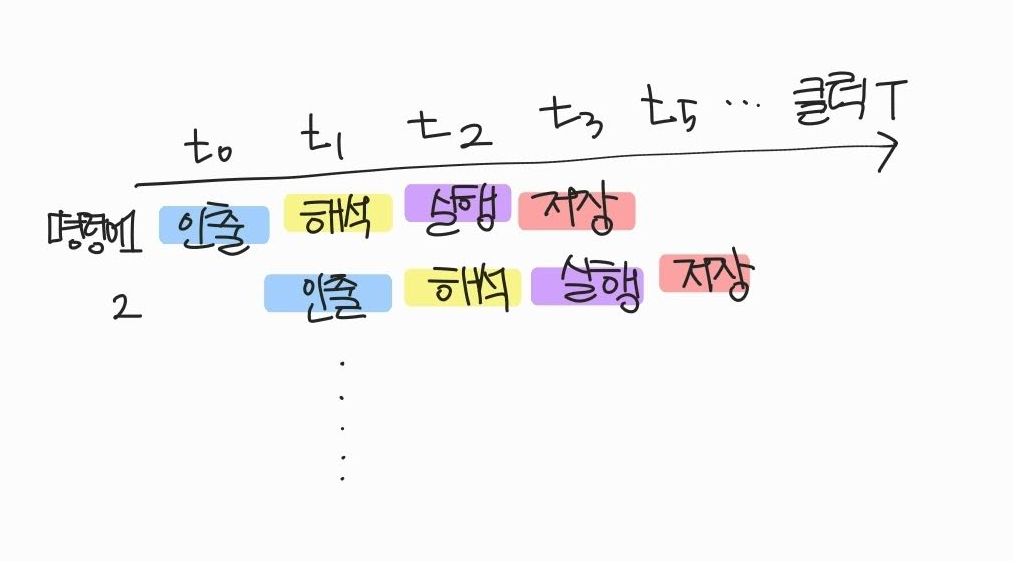 t₀ t₁ t₂ t₃ t₅ ... 클럭 T
명령어1 인출 해석 실행 저장
2 인출 해석 실행 저장